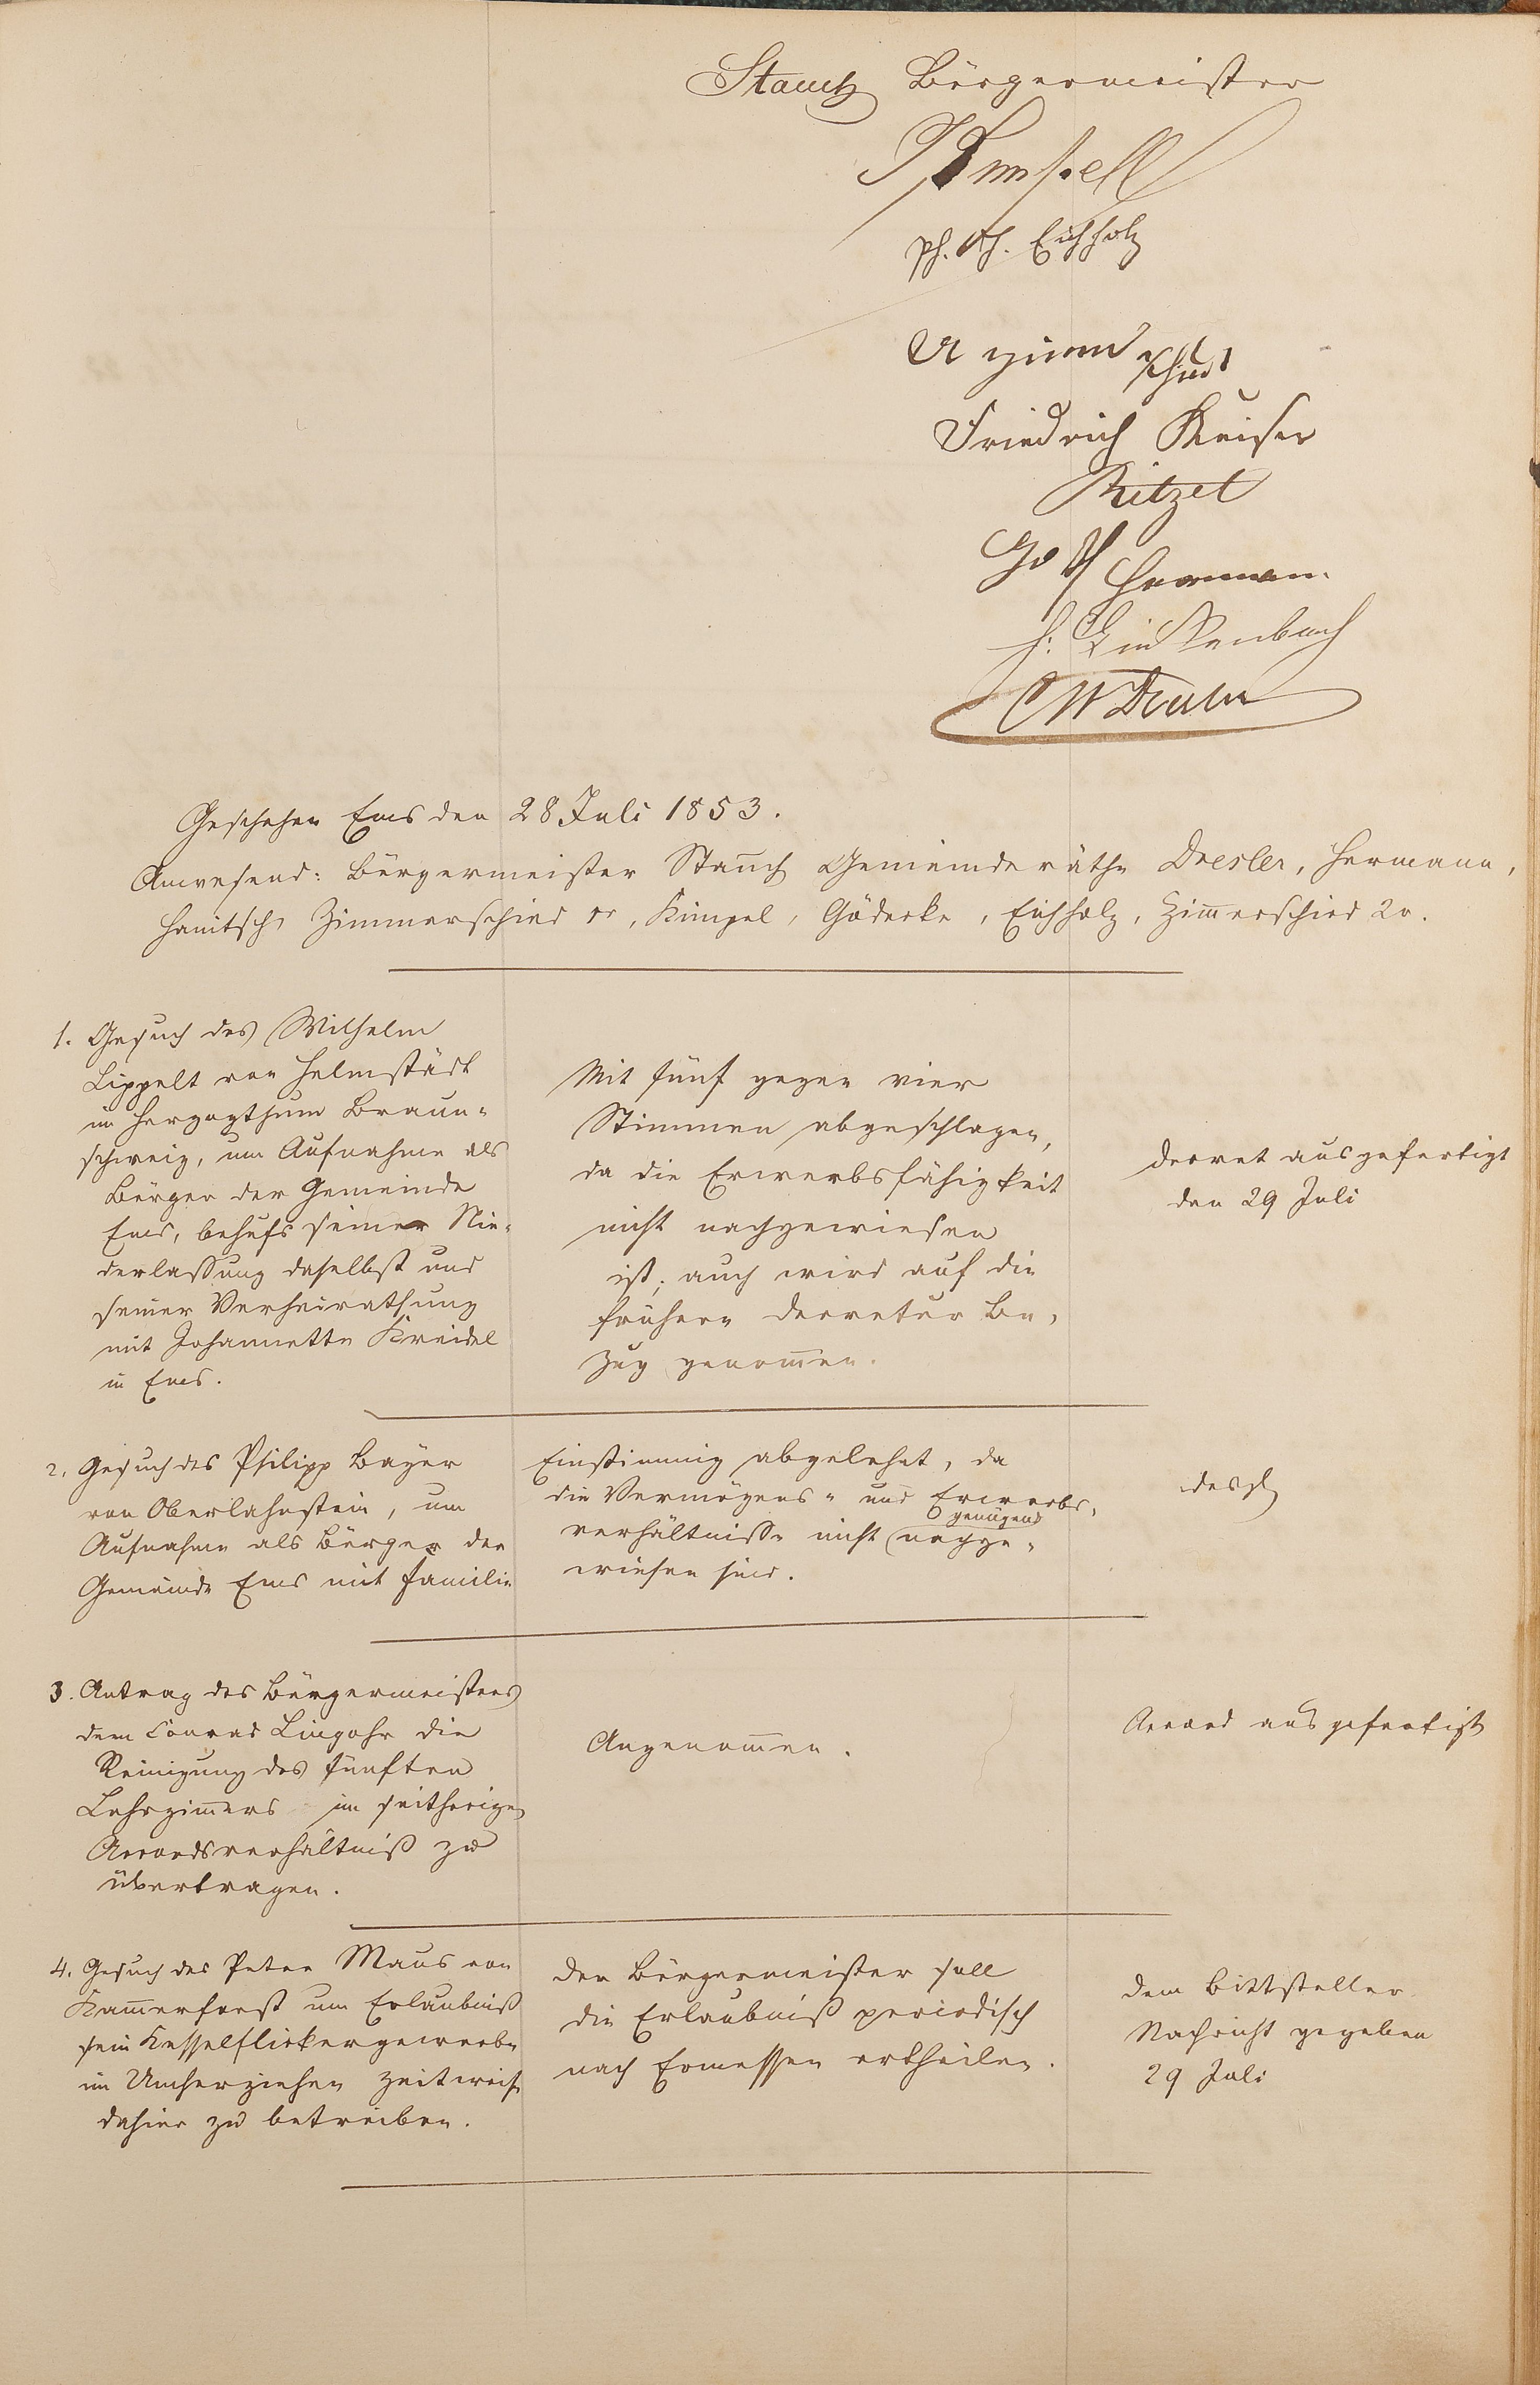 Stauch Bürgermeister
Kimpell
Ph. Eichholz
Friedrich Kaiser
Ritzel
Hermann.
H. Linkenbach
CW Dresler
Geschehen Ems den 28 Juli 1853.
Anwesend: Bürgermeister Stauch Gemeinderäthe Dresler, Hermann,
Hanitsch, Zimmerschied 1r, Kimpel, Gödecke, Eichholz, Zim̅erschied 2r.
1. Gesuch des Wilhelm
Lippelt von Helmstädt
im Herzogthum Braun-
schweig, um Aufnahme als
Bürger der Gemeinde
Ems, behufs seiner Nie-
derlassung daselbst und
seiner Verheirathung
mit Johannette Kreidel
in Ems.
Mit fünf gegen vier
Stimmen abgeschlagen,
da die Erwerbsfähigkeit
nicht nachgewiesen
ist; auch wird auf die
frühern Decretur Be-
zug genom̅en.
Decret ausgefertigt
den 29 Juli
2. Gesuch des Philipp Bayer
von Oberlahnstein, um
Aufnahme als Bürger der
Gemeinde Ems mit Familie
Einstimmig abgelehnt, da
die Vermögens- und Erwerbs-
genügend
verhältnisse nicht nachge-
wiesen sind.
desgl
3. Antrag des Bürgermeisters
dem Conrad Lingohr die
Reinigung des fünften
Lehrzim̅ers im seitherigen
Accordsverhältniß zu
übertragen.
Angenom̅en.
Accord ausgefertigt
4. Gesuch des Peter Maus von
Kam̅erforst um Erlaubniß
sein Kesselflickergewerbe
im Umherziehen zeitweise
dahier zu betreiben.
Der Bürgermeister soll
die Erlaubniß periodisch
nach Ermessen ertheilen.
Dem Bittsteller
Nachricht gegeben
29 Juli